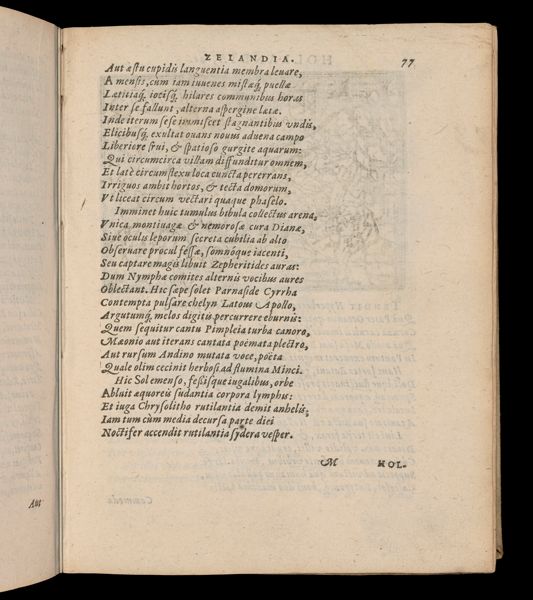 ZELANDIA. 77
Aut æstu cupidis languentia membra levare,
A mensis, cùm iam iuvenes mistæq́ puellæ
Lætitiaq́, iocisq́, hilares communibus horas
Inter se fallunt, alterna aspergine lætæ.
Inde iterum sese immiscet stagnantibus undis,
Elicibusq́, exultat ovans novus advena campo
Liberiore frui, & spatioso gurgite aquarum:
Qui circumcirca villam diffunditur omnem,
Et latè circumflexu loca cuncta pererrans,
Irriguos ambit hortos, & tecta domorum,
Ut liceat circum vectari quaque phaselo.
Imminet huic tumulus bibula collectus arena,
Unica montivagæ & nemorosæ cura Dianæ,
Sive oculis leporum secreta cubilia ab alto
Observare procul fessæ, somnóque iacenti,
Seu captare magis libuit Zephyritides auras:
Dum Nymphæ comites alternis vocibus aures
Oblectant. Hic sæpe solet Parnaside Cyrrha
Contempta pulsare chelyn Latous Apollo,
Argutumq́, melos digitis percurrere eburnis:
Quem sequitur cantu Pimpleia turba canoro,
Mæonio aut iterans cantata poëmata plectro,
Aut rursum Andino mutata voce, poëta
Quale olim cecinit herbosi ad flumina Minci.
Hic Sol emenso, fessisque iugalibus, orbe
Abluit æquoreis sudantia corpora lymphis:
Et iuga Chrysolitho rutilantia demit anhelis,
Iam tum cùm media decursa parte diei
Noctifer accendit rutilantia sydera vesper.
M HOL-
Aut